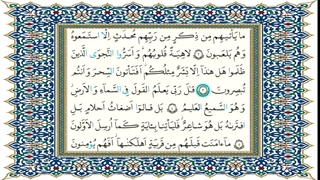 مَا يَأْتِيهِم مِّن ذِكْرٍ مِّن رَّبِّهِم مُّحْدَثٍ إِلَّا اسْتَمَعُوهُ
وَهُمْ يَلْعَبُونَ ۝ لَاهِيَةً قُلُوبُهُمْ وَأَسَرُّوا النَّجْوَى الَّذِينَ
ظَلَمُوا هَلْ هَٰذَا إِلَّا بَشَرٌ مِّثْلُكُمْ أَفَتَأْتُونَ السِّحْرَ وَأَنتُمْ
تُبْصِرُونَ ۝ قَالَ رَبِّي يَعْلَمُ الْقَوْلَ فِي السَّمَاءِ وَالْأَرْضِ
وَهُوَ السَّمِيعُ الْعَلِيمُ ۝ بَلْ قَالُوا أَضْغَاثُ أَحْلَامٍ بَلِ
افْتَرَاهُ بَلْ هُوَ شَاعِرٌ فَلْيَأْتِنَا بِآيَةٍ كَمَا أُرْسِلَ الْأَوَّلُونَ
۝ مَا آمَنَتْ قَبْلَهُم مِّن قَرْيَةٍ أَهْلَكْنَاهَا أَفَهُمْ يُؤْمِنُونَ